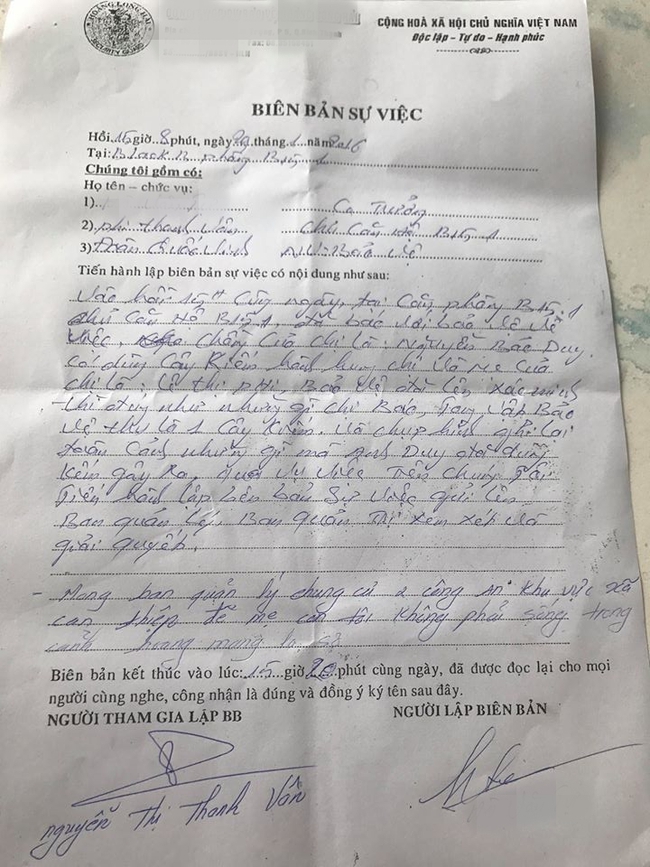 HOÀNG LONG HẢI
SECURITY GUARD
CỘNG HOÀ XÃ HỘI CHỦ NGHĨA VIỆT NAM
Độc lập – Tự do – Hạnh phúc
BIÊN BẢN SỰ VIỆC
Hồi 15 giờ 8 phút, ngày tháng 1 năm 2016
Tại: Block B phòng
Chúng tôi gồm có:
Họ tên – chức vụ:
1) Ca Trưởng
2) Thanh Vân Chủ Căn Hộ
3) Trần Quốc Bảo Vệ
Tiến hành lập biên bản sự việc có nội dung như sau:
Vào hồi 15h cùng ngày, tại Căn phòng
chủ Căn Hộ đã báo với bảo vệ về
việc, chồng Của chị là: Nguyễn Bảo Duy
có dùng Cây Kiếm hành hung chị và mẹ Của
chị là: Lê Thị Phi, Bảo Vệ đã lên xác minh
thì đúng như những gì chị Báo, Bảo
Vệ thu là 1 Cây Kiếm. Và chụp hình ghi lại
toàn Cảnh những gì mà Anh Duy đã dùng
Kiếm gây Ra, vụ việc Trên chúng Tôi
Tiến hành lập biên bản Sự Việc gửi lên
Ban quản lý, Ban quản Trị xem xét và
giải quyết.
- Mong ban quản lý chung cư & công an khu vực
can thiệp để mẹ con tôi không phải sống trong
cảnh hoang mang lo sợ
Biên bản kết thúc vào lúc: 15 giờ 20 phút cùng ngày, đã được đọc lại cho mọi
người cùng nghe, công nhận là đúng và đồng ý ký tên sau đây.
NGƯỜI THAM GIA LẬP BB NGƯỜI LẬP BIÊN BẢN
nguyễn Thị Thanh Vân